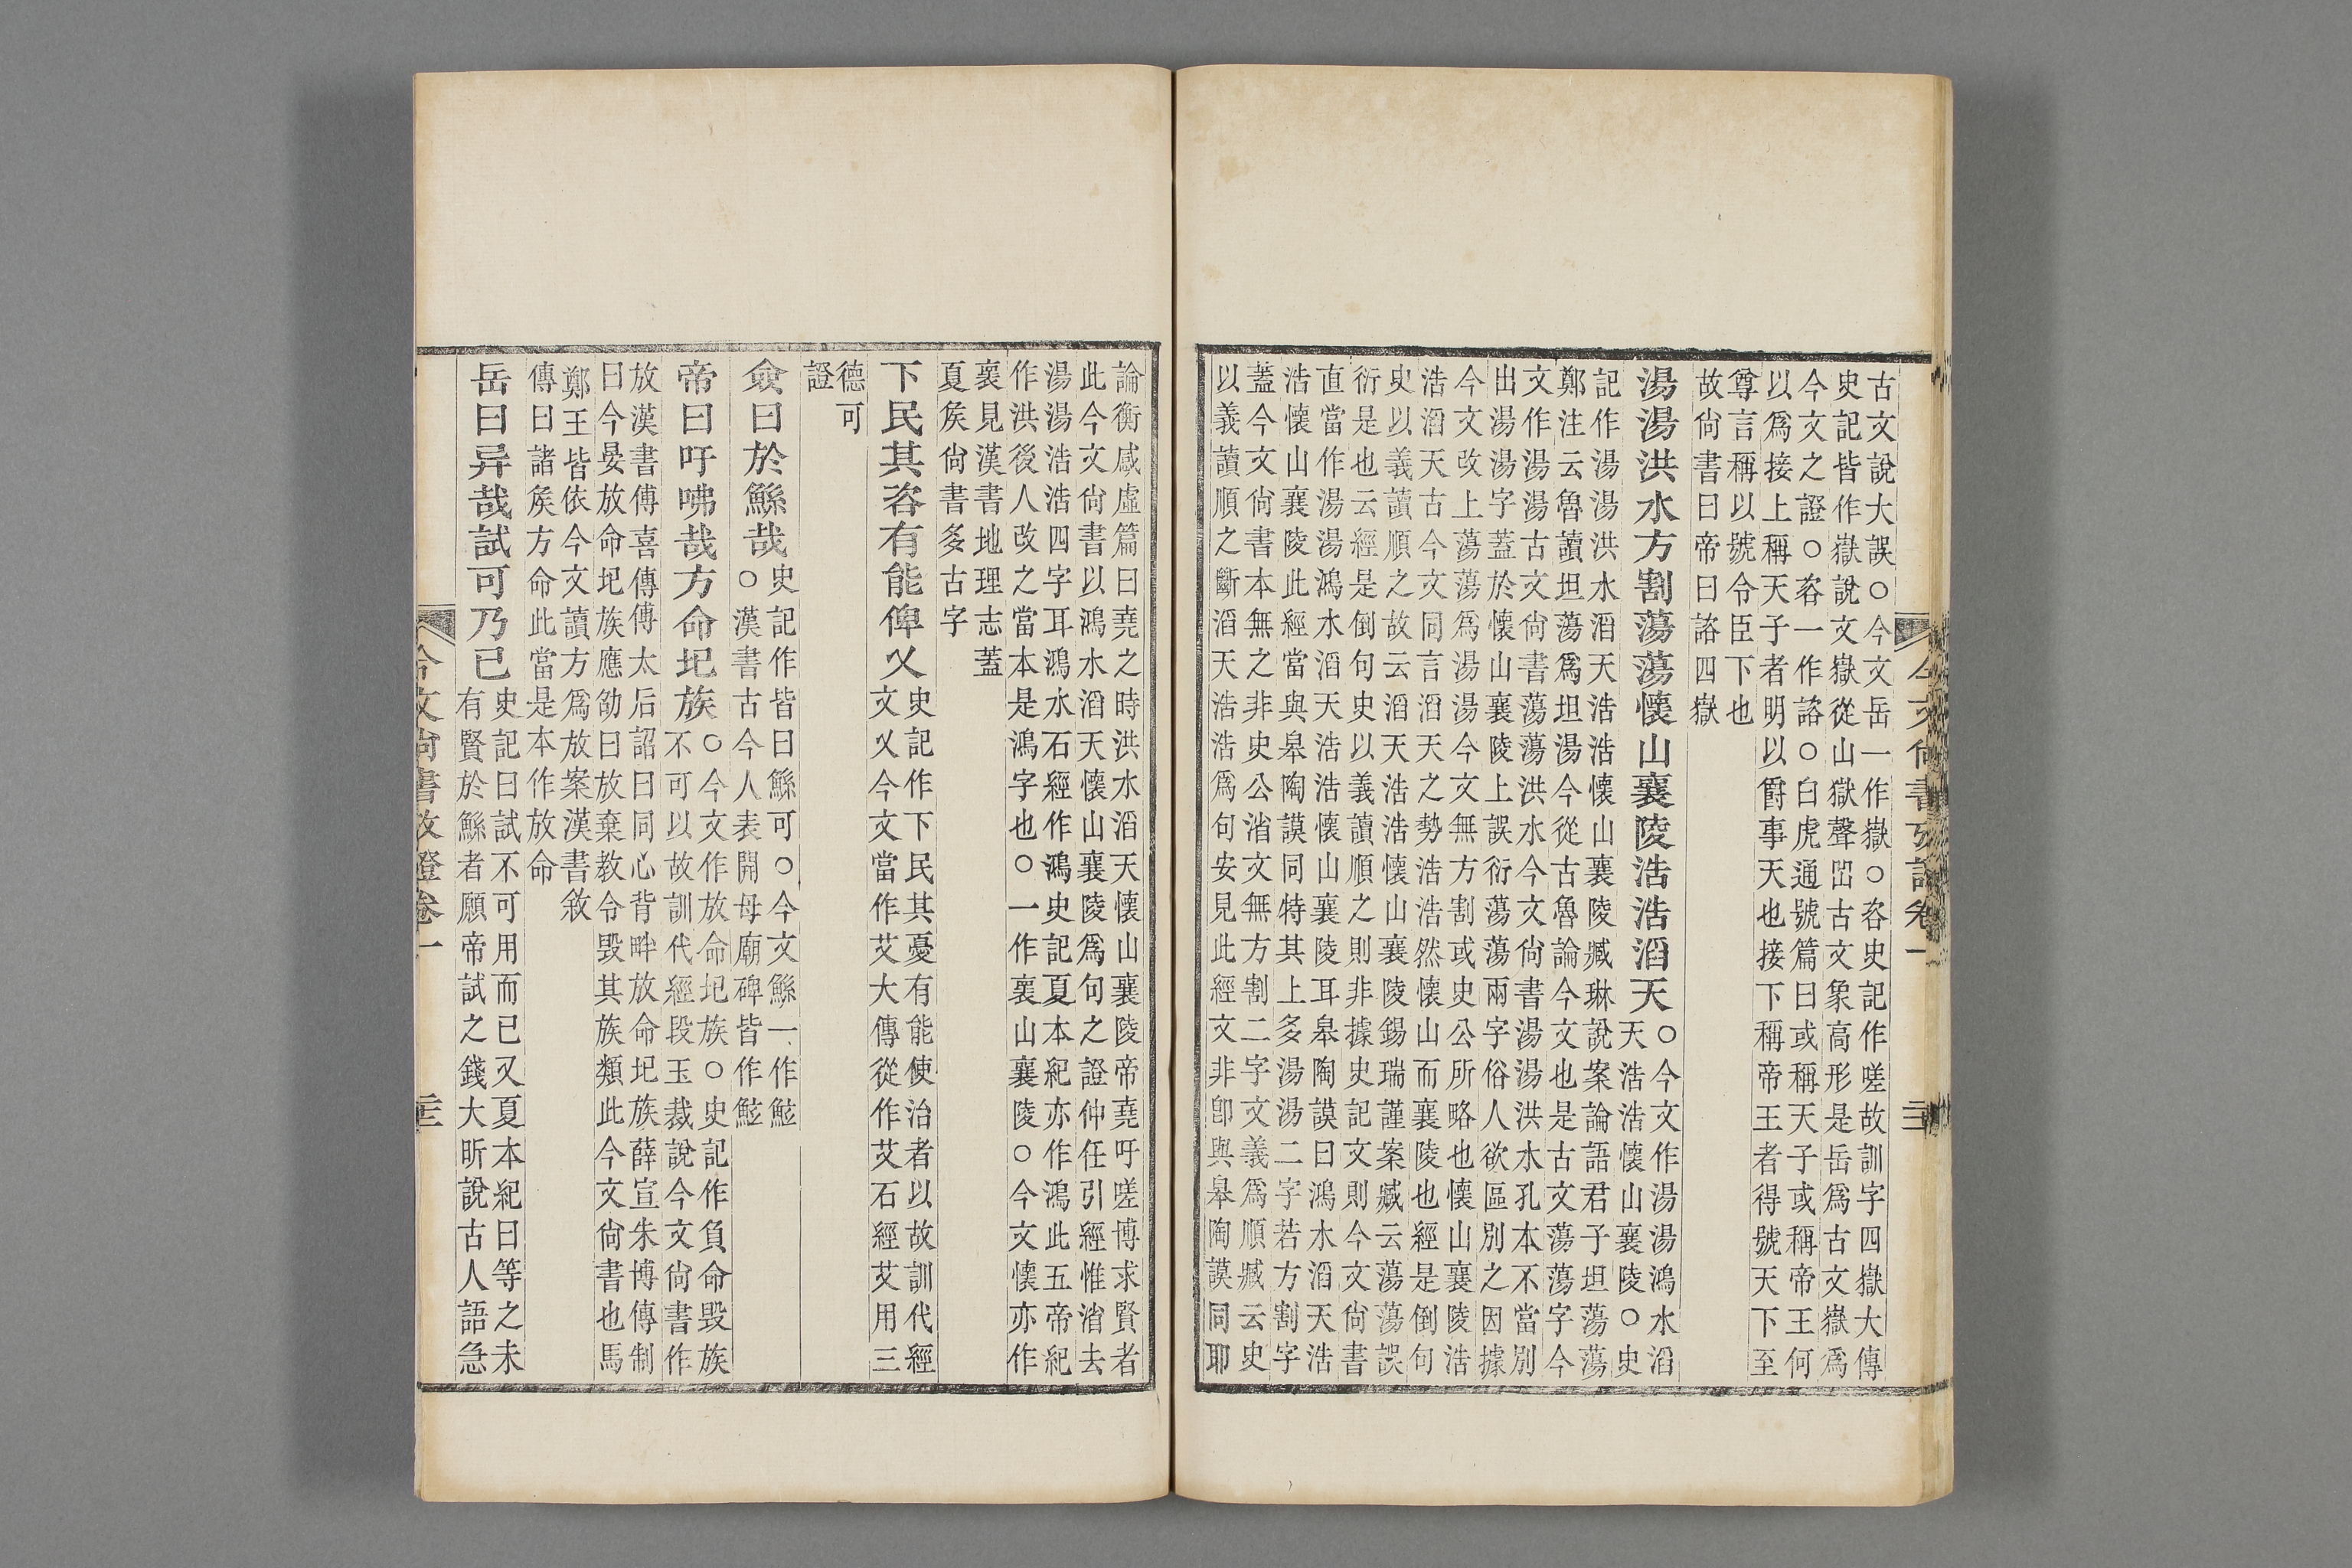 今文尙書攷證卷一 二二
古文說大誤○今文岳一作嶽○咨史記作嗟故訓字四嶽大傳
史記皆作嶽說文嶽從山獄聲𡶳古文象高形是岳爲古文嶽爲
今文之證○咨一作諮○白虎通號篇曰或稱天子或稱帝王何
以爲接上稱天子者明以爵事天也接下稱帝王者得號天下至
尊言稱以號令臣下也
故尙書曰帝曰諮四嶽
湯湯洪水方割蕩蕩懷山襄陵浩浩滔天
○今文作湯湯鴻水滔
天浩浩懷山襄陵○史
記作湯湯洪水滔天浩浩懷山襄陵臧琳說案論語君子坦蕩蕩
鄭注云魯讀坦蕩爲坦湯今從古魯論今文也是古文蕩蕩字今
文作湯湯古文尙書蕩蕩洪水今文尙書湯湯洪水孔本不當別
出湯湯字蓋於懷山襄陵上誤衍蕩蕩兩字俗人欲區別之因據
今文改上蕩蕩爲湯湯今文無方割或史公所略也懷山襄陵浩
浩滔天古今文同言滔天之勢浩浩然懷山而襄陵也經是倒句
史以義讀順之故云滔天浩浩懷山襄陵錫瑞謹案臧云蕩蕩誤
衍是也云經是倒句史以義讀順之則非據史記文則今文尙書
直當作湯湯鴻水滔天浩浩懷山襄陵耳皋陶謨曰鴻水滔天浩
浩懷山襄陵此經當與皋陶謨同特其上多湯湯二字若方割字
蓋今文尙書本無之非史公渻文無方割二字文義爲順臧云史
以義讀順之斷滔天浩浩爲句安見此經文非卽與皋陶謨同耶
論衡感虛篇曰堯之時洪水滔天懷山襄陵帝堯吁嗟博求賢者
此今文尙書以鴻水滔天懷山襄陵爲句之證仲任引經惟渻去
湯湯浩浩四字耳鴻水石經作鴻史記夏本紀亦作鴻此五帝紀
作洪後人改之當本是鴻字也○一作褱山襄陵○今文懷亦作
褱見漢書地理志蓋
夏侯尙書多古字
下民其咨有能俾乂
史記作下民其憂有能使治者以故訓代經
文乂今文當作艾大傳從作艾石經艾用三
德可
證
僉曰於鯀哉
史記作皆曰鯀可○今文鯀一作鮌
○漢書古今人表開母廟碑皆作鮌
帝曰吁咈哉方命圮族
○今文作放命圮族○史記作負命毀族
不可以故訓代經段玉裁說今文尙書作
放漢書傅喜傳傅太后詔曰同心背畔放命圮族薛宣朱博傳制
曰今晏放命圮族應劭曰放棄教令毀其族類此今文尙書也馬
鄭王皆依今文讀方爲放案漢書敘
傳曰諸侯方命此當是本作放命
岳曰异哉試可乃已
史記曰試不可用而已又夏本紀曰等之未
有賢於鯀者願帝試之錢大昕說古人語急
今文尙書攷證卷一 二三